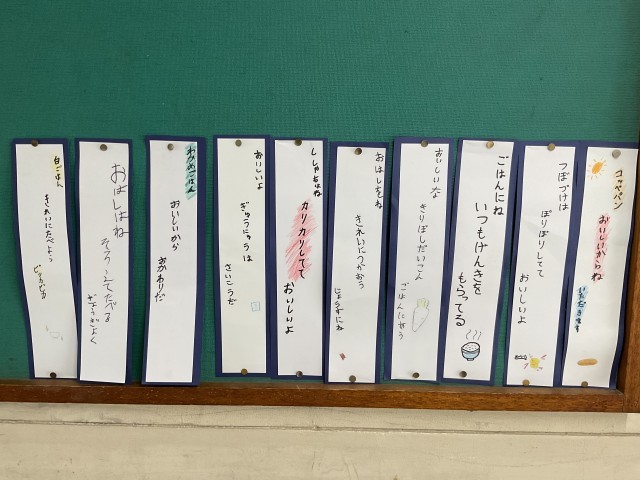 コッペパン
おいしいからね
いただきます
つぼづけは
ぽりぽりしてて
おいしいよ
ごはんにね
いつもげんきを
もらってる
おいしいな
きりぼしだいこん
ごはんに合う
おはしをね
きれいにつかおう
じょうずにね
ししゃもはね
カリカリしてて
おいしいよ
おいしいよ
ぎゅうにゅうは
さいこうだ
わかめごはん
おいしいから
おかわりだ
おはしはね
そろえてたべる
ぎょうぎよく
白ごはん
きれいにたべよう
ピッカピカ